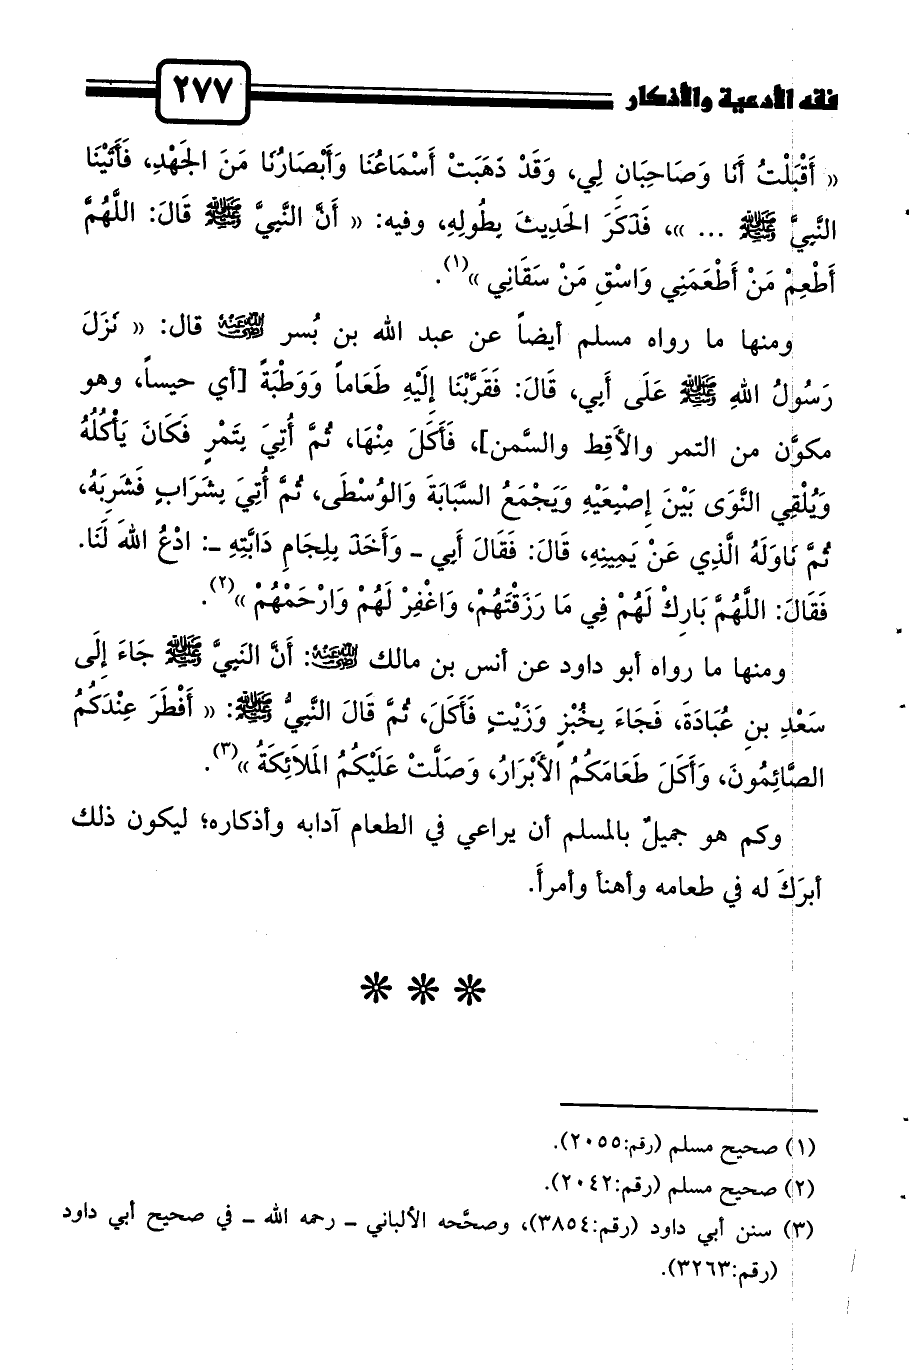 فقه الأدعية والأذكار ٢٧٧
« أَقْبَلْتُ أَنَا وَصَاحِبَانِ لِي، وَقَدْ ذَهَبَتْ أَسْمَاعُنَا وَأَبْصَارُنَا مَنَ الجَهْدِ، فَأَتَيْنَا
النَّبِيَّ ﷺ ... »، فَذَكَرَ الحَدِيثَ بِطُولِهِ، وفيه: « أَنَّ النَّبِيَّ ﷺ قَالَ: اللَّهُمَّ
أَطْعِمْ مَنْ أَطْعَمَنِي وَاسْقِ مَنْ سَقَانِي »(١).
ومنها ما رواه مسلم أيضاً عن عبد الله بن بُسر رضي الله عنه قال: « نَزَلَ
رَسُولُ اللهِ ﷺ عَلَى أَبِي، قَالَ: فَقَرَّبْنَا إِلَيْهِ طَعَاماً وَوَطْبَةً [أي حيساً، وهو
مكوَّن من التمر والأَقِط والسَّمن]، فَأَكَلَ مِنْهَا، ثُمَّ أُتِيَ بِتَمْرٍ فَكَانَ يَأْكُلُهُ
وَيُلْقِي النَّوَى بَيْنَ إِصْبِعَيْهِ وَيَجْمَعُ السَّبَّابَةَ وَالوُسْطَى، ثُمَّ أُتِيَ بِشَرَابٍ فَشَرِبَهُ،
ثُمَّ نَاوَلَهُ الَّذِي عَنْ يَمِينِهِ، قَالَ: فَقَالَ أَبِي ـ وَأَخَذَ بِلِجَامِ دَابَّتِهِ ـ: ادْعُ اللهَ لَنَا.
فَقَالَ: اللَّهُمَّ بَارِكْ لَهُمْ فِي مَا رَزَقْتَهُمْ، وَاغْفِرْ لَهُمْ وَارْحَمْهُمْ »(٢).
ومنها ما رواه أبو داود عن أنس بن مالك رضي الله عنه: أَنَّ النَبِيَّ ﷺ جَاءَ إِلَى
سَعْدِ بنِ عُبَادَةَ، فَجَاءَ بِخُبْزٍ وَزَيْتٍ فَأَكَلَ، ثُمَّ قَالَ النَّبِيُّ ﷺ: « أَفْطَرَ عِنْدَكُمُ
الصَّائِمُونَ، وَأَكَلَ طَعَامَكُمُ الأَبْرَارُ، وَصَلَّتْ عَلَيْكُمُ المَلَائِكَةُ »(٣).
وكم هو جميلٌ بالمسلم أن يراعي في الطعام آدابه وأذكاره؛ ليكون ذلك
أبرَكَ له في طعامه وأهنأ وأمرأَ.
(١) صحيح مسلم (رقم:٢٠٥٥).
(٢) صحيح مسلم (رقم:٢٠٤٢).
(٣) سنن أبي داود (رقم:٣٨٥٤)، وصحَّحه الألباني ـ رحمه الله ـ في صحيح أبي داود
(رقم:٣٢٦٣).